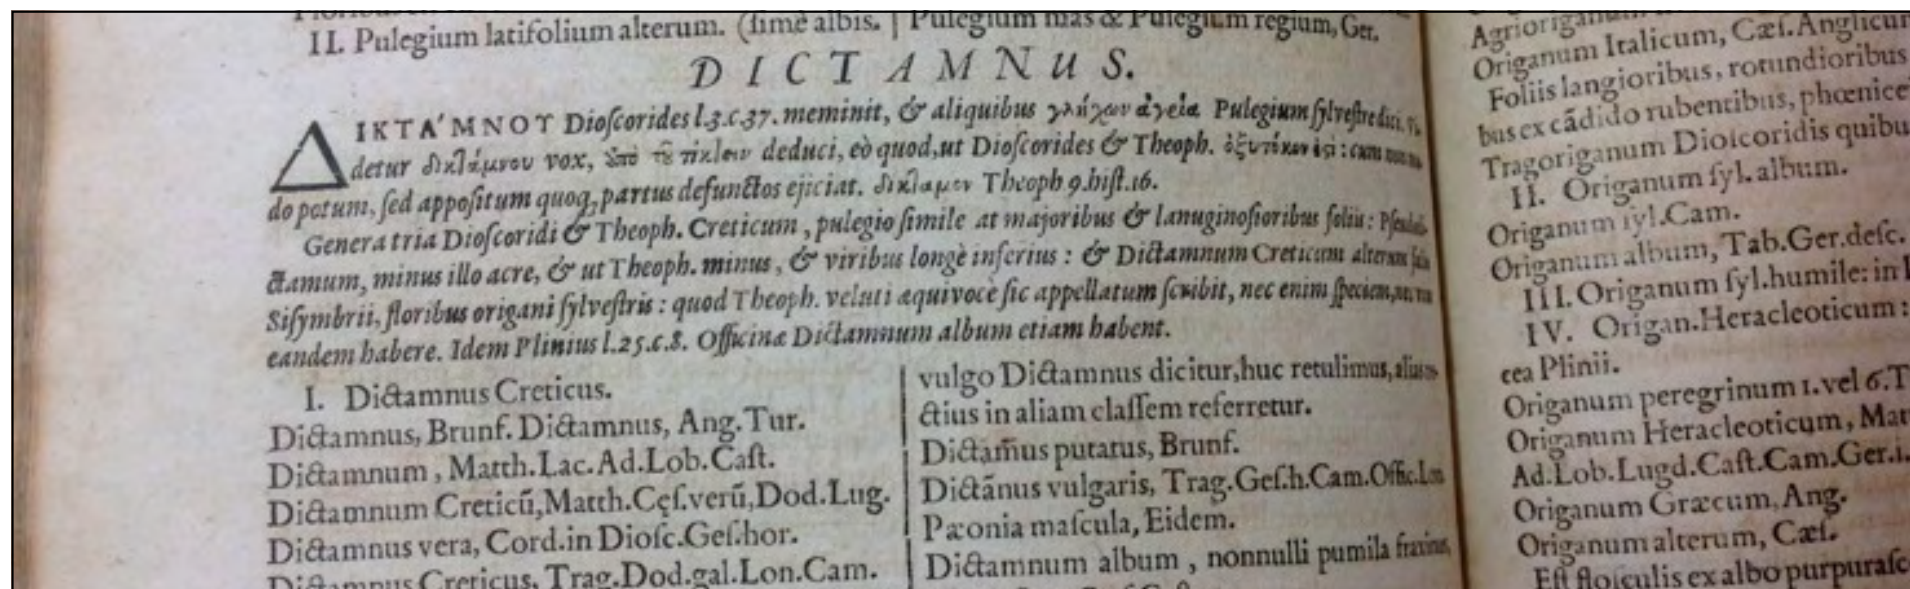 II. Pulegium latifolium alterum. (ſimè albis.
Pulegium mas & Pulegium regium, Ger.
DICTAMNUS.
ΔΙΚΤΑ´ΜΝΟΥ Dioſcorides l.3.c.37. meminit, & aliquibus γλήχων ἀγρία Pulegium ſylveſtre dici. Vi-
detur δικλάμνου vox, ὑπὸ τῦ τίκλειν deduci, eò quod, ut Dioſcorides & Theoph. ὀξυτόκον ἐςὶ: cum non
do potum, ſed appoſitum quoq, partus defunctos ejiciat. δίκλαμον Theoph 9.hiſt.16.
Genera tria Dioſcoridi & Theoph. Creticum, pulegio ſimile at majoribus & lanuginoſioribus foliis: Pſeudodi-
ctamum, minus illo acre, & ut Theoph. minus, & viribus longè inferius: & Dictamnum Creticum alterum foliis
Siſymbrii, floribus origani ſylveſtris: quod Theoph. veluti æquivocè ſic appellatum ſcribit, nec enim ſpeciem,
eandem habere. Idem Plinius l.25.c.8. Officinæ Dictamnum album etiam habent.
I. Dictamnus Creticus.
Dictamnus, Brunf. Dictamnus, Ang. Tur.
Dictamnum, Matth. Lac. Ad. Lob. Caſt.
Dictamnum Creticū, Matth. Cęſ. verū, Dod. Lug.
Dictamnus vera, Cord. in Dioſc. Geſ. hor.
Dictamnus Creticus, Trag. Dod. gal. Lon. Cam.
vulgo Dictamnus dicitur, huc retulimus, alius
ctius in aliam claſſem referretur.
Dictam̄us putatus, Brunf.
Dictānus vulgaris, Trag. Geſ. h. Cam. Offic. Lon
Pæonia maſcula, Eidem.
Dictamnum album, nonnulli pumila fraxinus,
Origanum Italicum, Cæſ. Anglicum
Foliis langioribus, rotundioribus
bus ex cādido rubentibus, phœnice
Tragoriganum Dioſcoridis quibu
II. Origanum ſyl. album.
Origanum ſyl. Cam.
Origanum album, Tab. Ger. deſc.
III. Origanum ſyl. humile: in
IV. Origan. Heracleoticum:
cea Plinii.
Origanum peregrinum 1. vel 6. T
Origanum Heracleoticum, Mat
Ad. Lob. Lugd. Caſt. Cam. Ger. 1.
Origanum Græcum, Ang.
Origanum alterum, Cæſ.
Eſt floſculis ex albo purpuraſc